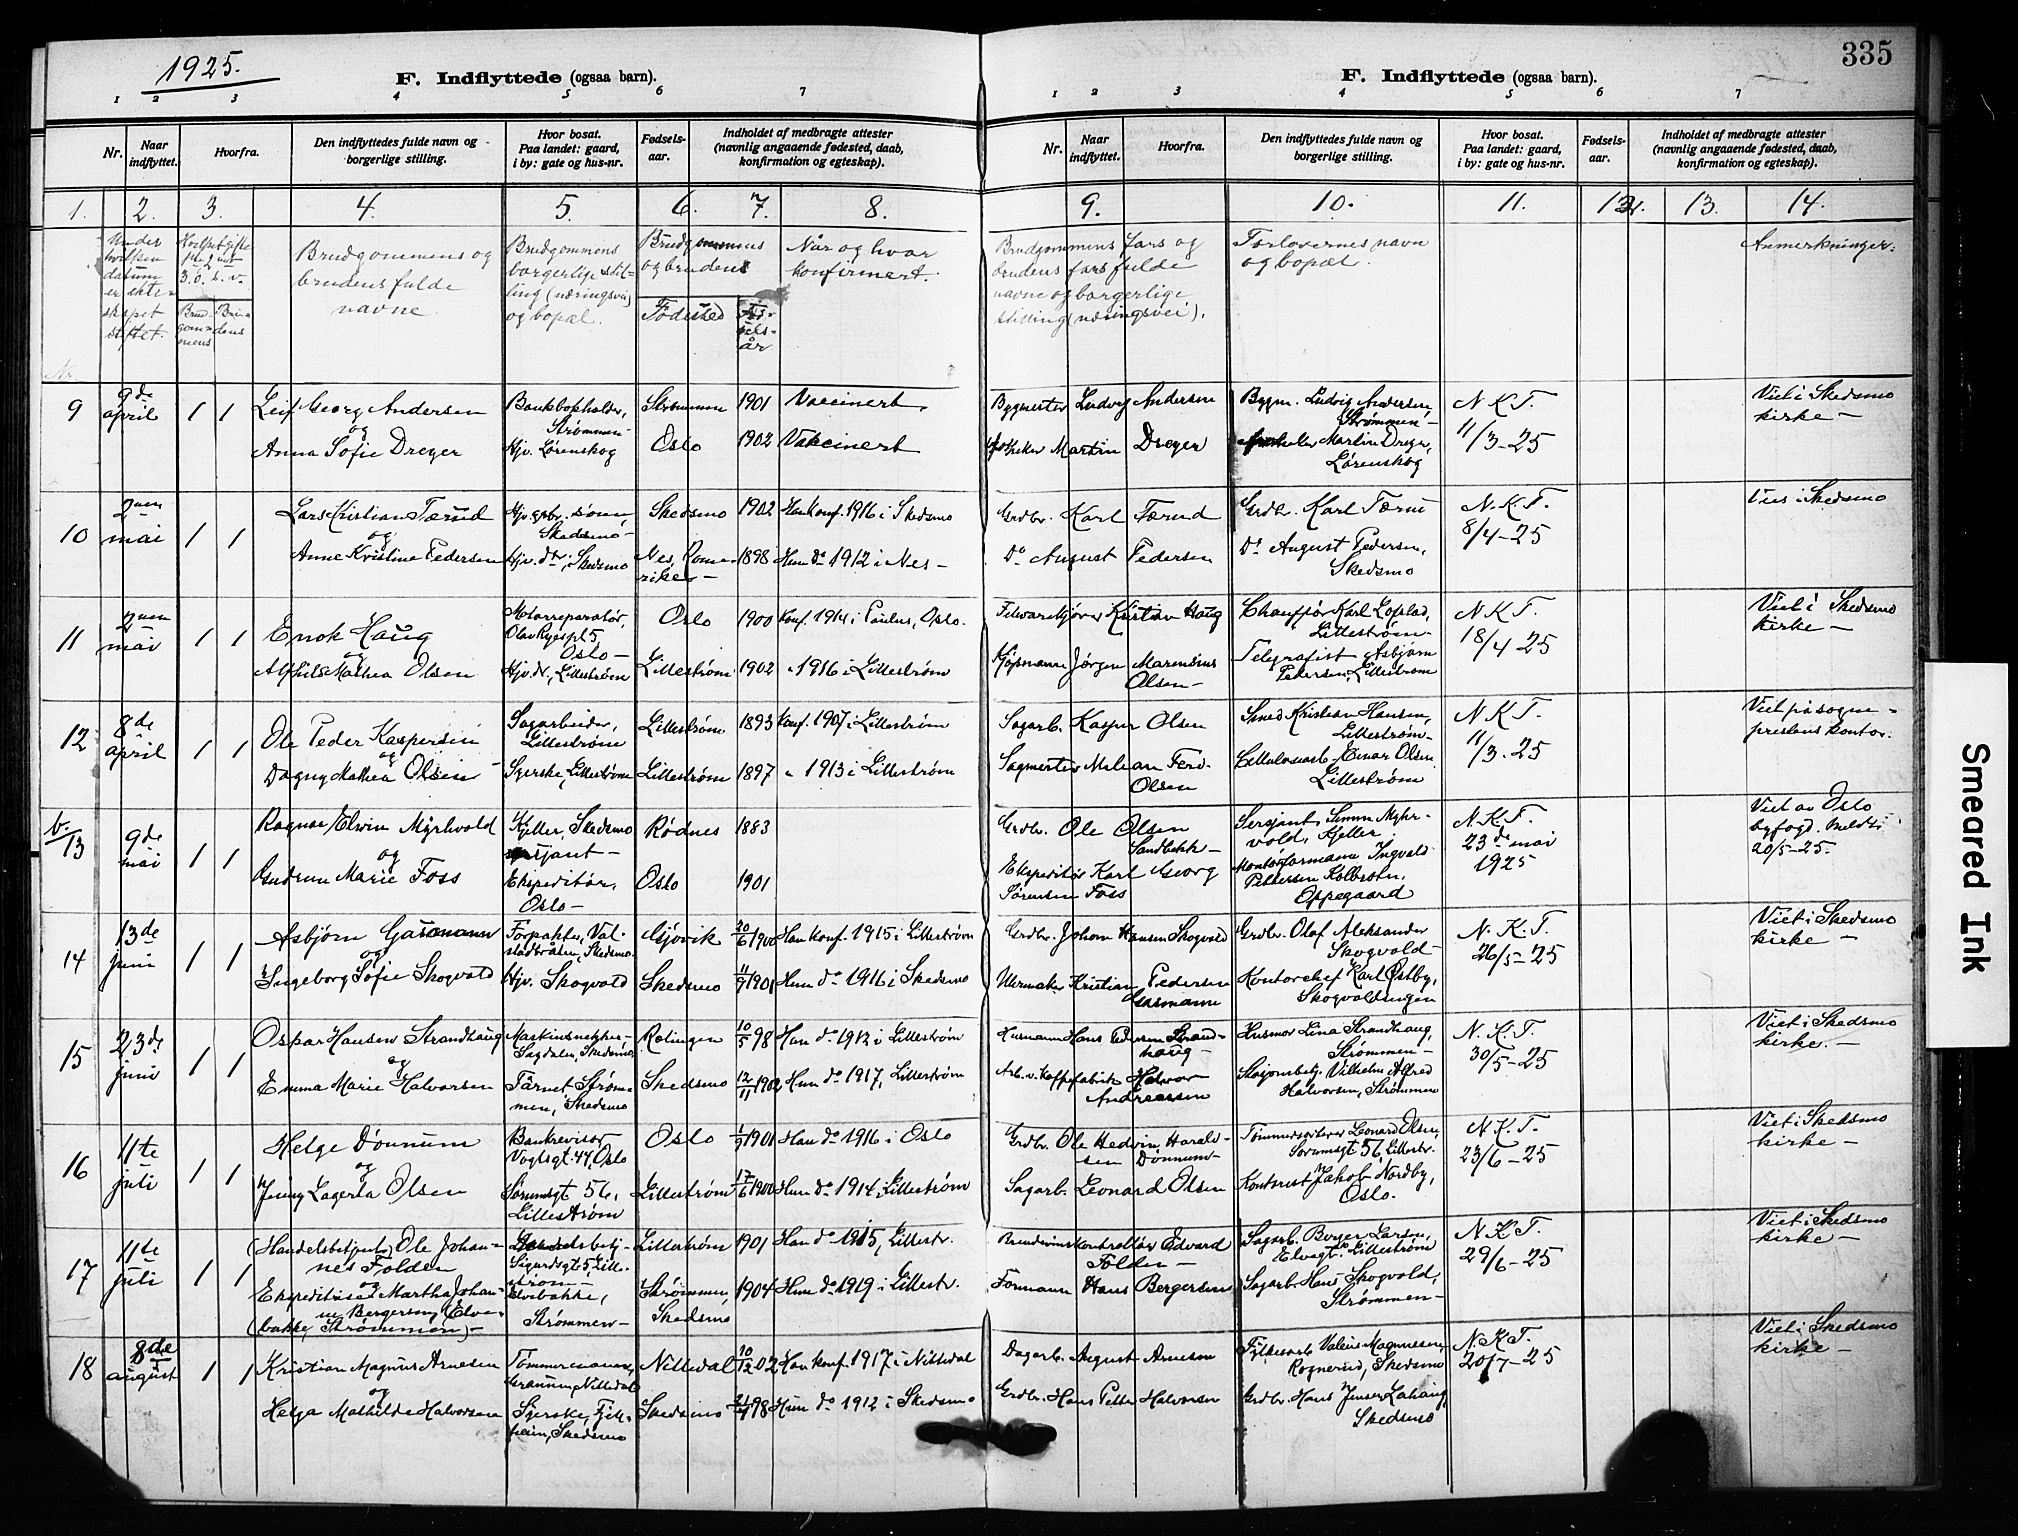 1925.
F. Indflyttede (ogsaa barn).
1 2 3 4 5 6 7
Nr.
Naar indflyttet.
Hvorfra.
Den indflyttedes fulde navn og borgerlige stilling.
Hvor bosat. Paa landet: gaard, i by: gate og hus-nr.
Fødsels-aar.
Indholdet af medbragte attester (navnlig angaaende fødested, daab, konfirmation og egteskap).
1. 2. 3. 4. 5. 6. 7. 8.
Under hvilken datum er ekte-skapet stiftet.
Brud-gom-mens
Bru-dens
Brudgommens og brudens fulde navne
Brudgommens borgerlige stil-ling (næringsvei) og bopæl.
Brudgommens og brudens
Fødested
Fød-sels-år
Når og hvor konfirmert.
Nr.
335
F. Indflyttede (ogsaa barn).
1 2 3 4 5 6 7
Nr.
Naar indflyttet.
Hvorfra.
Den indflyttedes fulde navn og borgerlige stilling.
Hvor bosat. Paa landet: gaard, i by: gate og hus-nr.
Fødsels-aar.
Indholdet af medbragte attester (navnlig angaaende fødested, daab, konfirmation og egteskap).
9. 10. 11. 12. 13. 14.
Brudgommens fars og brudens fars fulde navne og borgerlige stilling (næringsvei).
Forlovernes navn og bopæl.
Anmerkninger.
9 9de april 1 1
Leif Georg Andersen
og
Anna Sofie Dreyer
Bankbokholder, Strømmen
Hjv. Lørenskog
Strømmen 1901 Vaccinert
Oslo 1902 Vaksinert
Bygmester Ludvig Andersen
Martin Dreyer
Bygm. Ludvig Andersen, Strømmen
Martin Dreyer, Lørenskog
N.K.T. 11/3-25
Viet i Skedsmo kirke
10 2nen mai 1 1
Lars Kristian Færud
og
Anne Kristine Pedersen
Hjv. gbr. sønn, Skedsmo
Hjv. dtr., Skedsmo
Skedsmo 1902 Han konf. 1916 i Skedsmo
Nes, Rome-rike 1898 Hun do 1912 i Nes
Grdbr. Karl Færud
Do August Pedersen
Grdbr. Karl Færud
Do August Pedersen, Skedsmo
N.K.T. 8/4-25
Viet i Skedsmo
11 2nen mai 1 1
Enok Haug
og
Alfhild Mathea Olsen
Motorreparatør, Olav Ryespl 5, Oslo
Hjv. dt., Lillestrøm
Oslo 1900 Konf. 1914 i Paulus, Oslo.
Lillestrøm 1902 " 1916 i Lillestrøm
Kristian Haug
Kjøpmann Jørgen Marensius Olsen
Chauffør Karl Lopstad, Lillestrøm
Telegrafist Asbjørn Pedersen, Lillestrøm
N.K.T. 18/4 25
Viet i Skedsmo kirke
12 8de april 1 1
Ole Peder Kaspersen
og
Dagny Mathea Olsen
Sagarbeider, Lillestrøm
Syerske, Lillestrøm
Lillestrøm 1893 Konf. 1907 i Lillestrøm
Lillestrøm 1897 " 1913 i Lillestrøm
Sagarb. Kasper Olsen
Sagmester Ferd. Olsen
Smed Kristian Hansen, Lillestrøm
Cellulosearb. Einar Olsen Lillestrøm
N.K.T. 11/3-25
Viet på sogne-prestens kontor.
b. 13 9de mai 1 1
Ragnar Elwin Myhrvold
og
Gudrun Marie Foss
Kjeller, Skedsmo sersjant
Ekspeditør, Oslo
Rødnes 1883
Oslo 1901
Grdbr. Ole Olsen Sandbekk
Ekspeditør Karl Georg Sørensen Foss
Sersjant Simen Myhr-vold, Kjeller
Montørformann Ingvald Pettersen Kolbotn, Oppegaard
N.K.T. 23de mai 1925
Viet av Oslo byfogd. Meldt 20/5-25.
14 13de juni 1 1
Asbjørn Garmann
og
Ingeborg Sofie Skogvold
Forpakter, Skedsmo
Hjv. Skogvold
Gjøvik 20/6 1900 Han konf. 1915 i Lillestrøm
Skedsmo 11/9 1901 Hun do 1916 i Skedsmo
Grdbr. Johan Hansen Skogvold
Urmaker Kristian Pedersen Garmann
Grdbr. Olaf Aleksander Skogvold
Kontorchef Karl Østby, Skogvoldengen
N.K.T. 26/5-25
Viet i Skedsmo kirke
15 23de juni 1 1
Oskar Hansen Strandhaug
og
Emma Marie Halvorsen
Sagdalen, Skedsmo
Tärnet Strøm-men, Skedsmo
Rælingen 10/5 98 Han do 1912 i Lillestrøm
Skedsmo 12/11 1902 Hun do 1917, Lillestrøm
Husmann Hans Pedersen Strand-haug
Halvor Andreassen
Husmor Lina Strandhaug, Strømmen
Stasjonsbetj. Vilhelm Alfred Halvorsen, Strømmen
N.K.T. 30/5-25
Viet i Skedsmo kirke.
16 11te juli 1 1
Helge Dønnum
og
Jenny Lagerta Olsen
Bankrevisor Vogtsgt. 44, Oslo
Sørumsgt 56, Lillestrøm
Oslo 1/9 1901 Han do 1916 i Oslo
Lillestrøm 17/6 1900 Hun do 1914 i Lillestrøm
Grdbr. Ole Hedvin Harald-sen Dønnum
Sagarb. Leonard Olsen
Leonard Olsen, Sørumsgt 56, Lillestr.
Kontorist Jakob Nordby, Oslo.
N.K.T. 23/6-25
Viet i Skedsmo kirke
17 11te juli 1 1
(Handelsbetjent) Ole Johan-nes Folden
og
Ekspeditrise Martha Johan-ne Bergersen (Elve-bakke Strømmen)
Handelsbetj. Sigurdsgt. 5, Lille-strøm
Elvebakke, Strømmen
Lillestrøm 1901 Han do 1915, Lillestr.
Strømmen Skedsmo 1904 Hun do 1919 i Lillestr.
Brendevinskontrollør Edvard Folden
Formann Hans Bergersen
Sagarb. Borger Larsen, Elvegt. Lillestrøm
Sagarb. Hans Skogvold, Strømmen
N.K.T. 29/6-25
Viet i Skedsmo kirke
18 8de august 1 1
Kristian Magnus Arnesen
og
Helga Mathilde Halvorsen
Tømmermann, Nittedal
Syerske, Skedsmo
Nittedal 10/12 02 Han konf. 1917 i Nittedal
Skedsmo 98 Hun do 1912 i Skedsmo
Dagarb. August Arnesen
Grdbr. Hans Petter Halvorsen
Magnussen, Rognerud, Skedsmo
Grdbr. Hans Jensen Lahaug, Skedsmo
N.K.T. 20/7-25
Viet i Skedsmo kirke
Smeared Ink